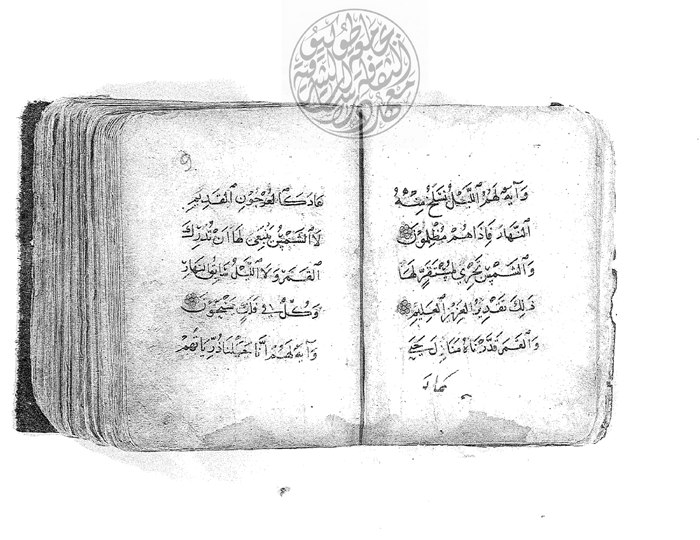 وَآيَةٌ لَهُمُ اللَّيْلُ نَسْلَخُ مِنْهُ
النَّهَارَ فَإِذَا هُمْ مُظْلِمُونَ
وَالشَّمْسُ تَجْرِي لِمُسْتَقَرٍّ لَهَا
ذَلِكَ تَقْدِيرُ الْعَزِيزِ الْعَلِيمِ
وَالْقَمَرَ قَدَّرْنَاهُ مَنَازِلَ حَتَّى
عاد
عَادَ كَالْعُرْجُونِ الْقَدِيمِ
لَا الشَّمْسُ يَنْبَغِي لَهَا أَنْ تُدْرِكَ
الْقَمَرَ وَلَا اللَّيْلُ سَابِقُ النَّهَارِ
وَكُلٌّ فِي فَلَكٍ يَسْبَحُونَ
وَآيَةٌ لَهُمْ أَنَّا حَمَلْنَا ذُرِّيَّاتِهِمْ